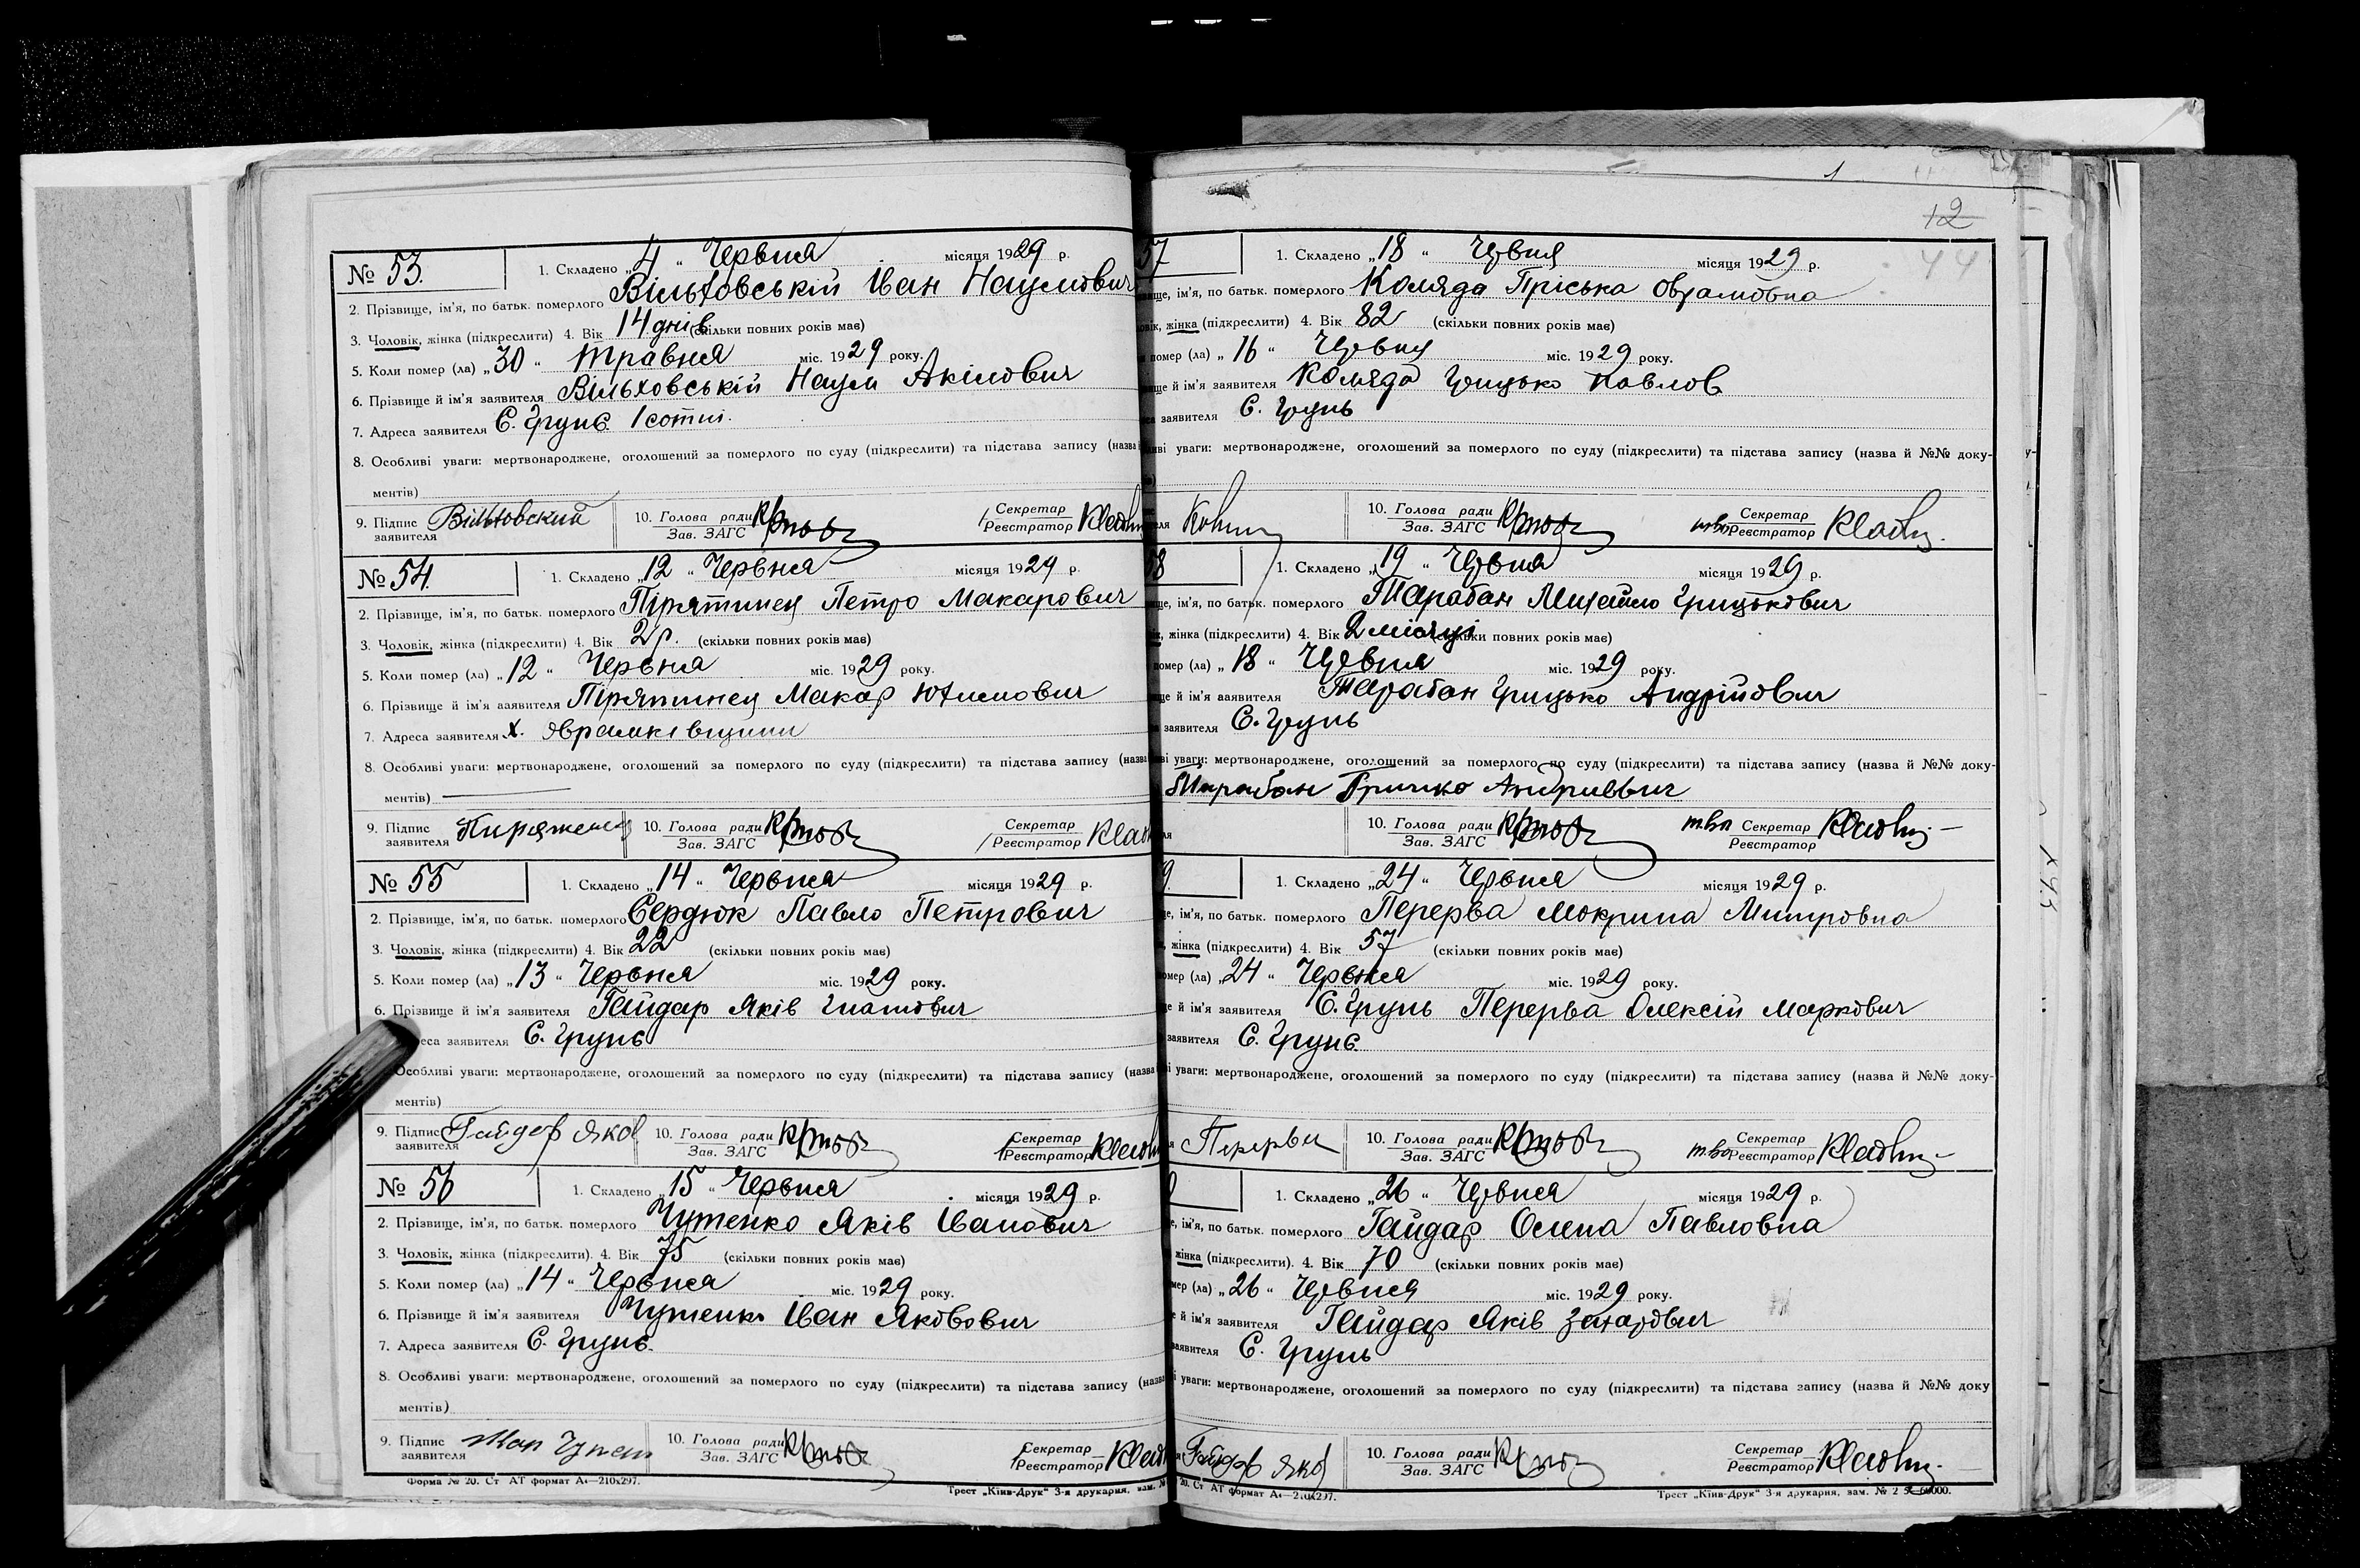 № 53. 1. Складено „4“ Червня місяця 1929 р.
2. Прізвище, ім'я, по батьк. померлого Вільховській Іван Наумович
3. Чоловік, жінка (підкреслити) 4. Вік 14 днів (скільки повних років має)
5. Коли помер (ла) „30“ травня міс. 1929 року.
6. Прізвище й ім'я заявителя Вільховській Наум Акимович
7. Адреса заявителя С. Грунь 1 сотні.
8. Особливі уваги: мертвонароджене, оголошений за померлого по суду (підкреслити) та підстава запису (назва
ментів)
9. Підпис заявителя Вільховский 10. Голова ради Зав. ЗАГС Секретар Реєстратор
№ 54. 1. Складено „12“ Червня місяця 1929 р.
2. Прізвище, ім'я, по батьк. померлого Пірятинец Петро Макарович
3. Чоловік, жінка (підкреслити) 4. Вік 2 р. (скільки повних років має)
5. Коли помер (ла) „12“ Червня міс. 1929 року.
6. Прізвище й ім'я заявителя Пірятинец Макар Юхимович
7. Адреса заявителя х.
8. Особливі уваги: мертвонароджене, оголошений за померлого по суду (підкреслити) та підстава запису (назва
ментів)
9. Підпис заявителя 10. Голова ради Зав. ЗАГС Секретар Реєстратор
№ 55 1. Складено „14“ Червня місяця 1929 р.
2. Прізвище, ім'я, по батьк. померлого Сердюк Павло Петрович
3. Чоловік, жінка (підкреслити) 4. Вік 22 (скільки повних років має)
5. Коли помер (ла) „13“ Червня міс. 1929 року.
6. Прізвище й ім'я заявителя Гайдар Яків Гнатович
реса заявителя С. Грунь
Особливі уваги: мертвонароджене, оголошений за померлого по суду (підкреслити) та підстава запису (назва
ментів)
9. Підпис заявителя Гайдар Яков 10. Голова ради Зав. ЗАГС Секретар Реєстратор
№ 56 1. Складено „15“ Червня місяця 1929 р.
2. Прізвище, ім'я, по батьк. померлого Чутенко Яків Іванович
3. Чоловік, жінка (підкреслити). 4. Вік 75 (скільки повних років має)
5. Коли помер (ла) „14“ Червня міс. 1929 року.
6. Прізвище й ім'я заявителя Чутенко Іван Якович
7. Адреса заявителя С. Грунь.
8. Особливі уваги: мертвонароджене, оголошений за померлого по суду (підкреслити) та підстава запису (назва
ментів)
9. Підпис заявителя 10. Голова ради Зав. ЗАГС Секретар Реєстратор
Форма № 20. Ст АТ формат А4—210х297. Трест „Київ-Друк“ 3-я друкарня, зам. №
12
44
57 1. Складено „18“ Червня місяця 1929 р.
ім'я, по батьк. померлого Коляда Пріська Оврамовна
жінка (підкреслити) 4. Вік 82 (скільки повних років має)
помер (ла) „16“ Червня міс. 1929 року.
й ім'я заявителя Коляда Грицько Павлов
заявителя С. Грунь
уваги: мертвонароджене, оголошений за померлого по суду (підкреслити) та підстава запису (назва й №№ доку-
10. Голова ради Зав. ЗАГС Секретар Реєстратор
58 1. Складено „19“ Червня місяця 1929 р.
ім'я, по батьк. померлого Тарабан Михайло Грицькович
жінка (підкреслити) 4. Вік 2 місяці (скільки повних років має)
помер (ла) „18“ Червня міс. 1929 року.
й ім'я заявителя Тарабан Грицько Андрійович
заявителя С. Грунь
уваги: мертвонароджене, оголошений за померлого по суду (підкреслити) та підстава запису (назва й №№ доку-
Тарабан Грицко
10. Голова ради Зав. ЗАГС Секретар Реєстратор
9. 1. Складено „24“ Червня місяця 1929 р.
ім'я, по батьк. померлого Перерва Мокрина Митровна
жінка (підкреслити) 4. Вік 57 (скільки повних років має)
(ла) „24“ Червня міс. 1929 року.
й ім'я заявителя С. Грунь Перерва Олексій Маркович
заявителя С. Грунь
уваги: мертвонароджене, оголошений за померлого по суду (підкреслити) та підстава запису (назва й №№ доку-
Перерва 10. Голова ради Зав. ЗАГС Секретар Реєстратор
1. Складено „26“ Червня місяця 1929 р.
ім'я, по батьк. померлого Гайдар Олена Павловна
жінка (підкреслити). 4. Вік 70 (скільки повних років має)
(ла) „26“ Червня міс. 1929 року.
й ім'я заявителя Гайдар Яків Захарович
заявителя С. Грунь
уваги: мертвонароджене, оголошений за померлого по суду (підкреслити) та підстава запису (назва й №№ доку
Гайдар Яков 10. Голова ради Зав. ЗАГС Секретар Реєстратор
20. Ст АТ формат А4—210х297. Трест „Київ-Друк“ 3-я друкарня, зам. №